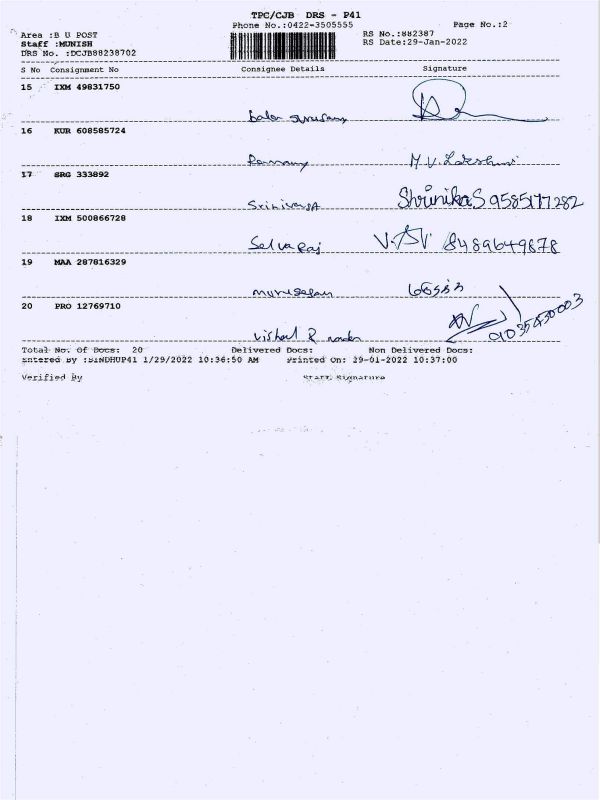 TPC/CJB DRS - P41
Phone No.:0422-3505555 Page No.:2
Area :B U POST RS No.:882387
Staff :MUNISH RS Date:29-Jan-2022
DRS No. :DCJB88238702
S No Consignment No Consignee Details Signature
15 IXM 49831750
16 KUR 608585724
M V. Lakshmi
17 SRG 333892
Shrinika.S 9585177282
18 IXM 500866728
Selvaraj 8489649878
19 MAA 287816329
20 PRO 12769710
vishal R
Total No. Of Docs: 20 Delivered Docs: Non Delivered Docs:
Entered By :SINDHUP41 1/29/2022 10:36:50 AM Printed On: 29-01-2022 10:37:00
Verified By Staff Signature